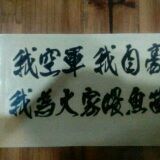 我空軍 我自豪
我為大家喂魚苗